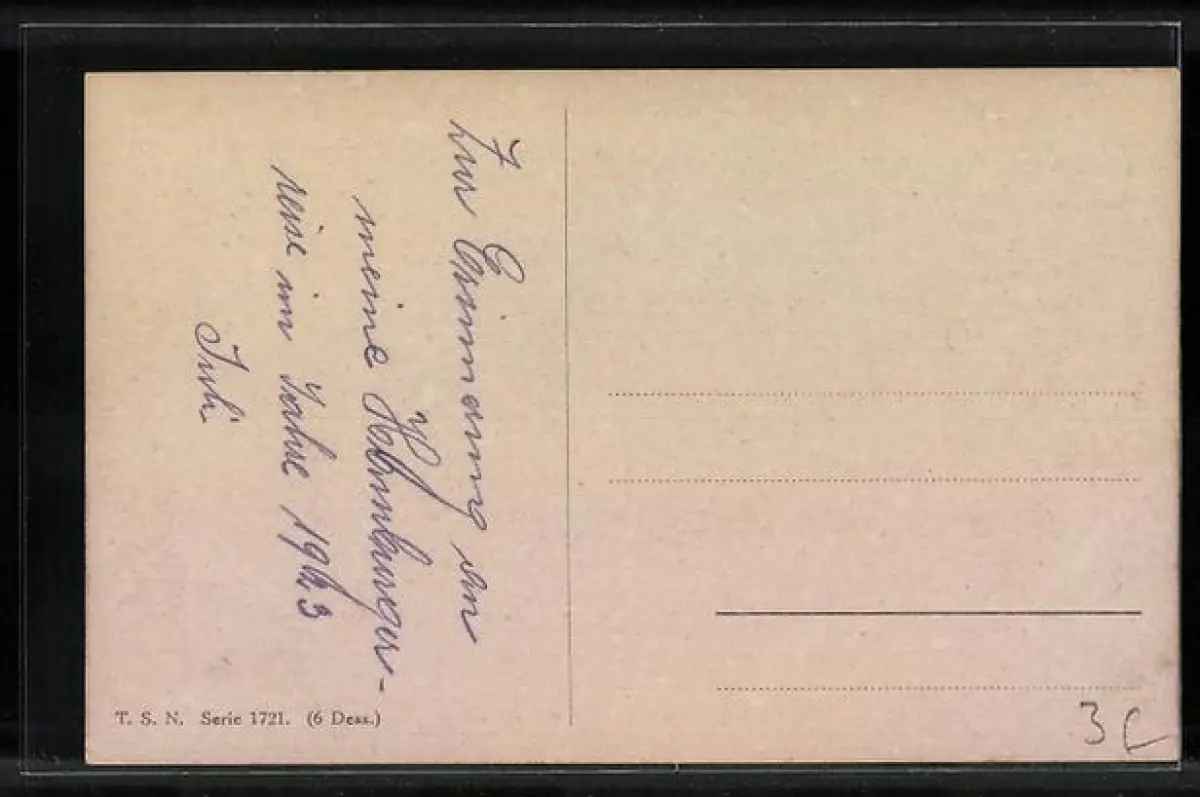 Zur Erinnerung an
meine Hamburger-
reise im Jahre 1923
Juli
T. S. N. Serie 1721. (6 Dess.)
3